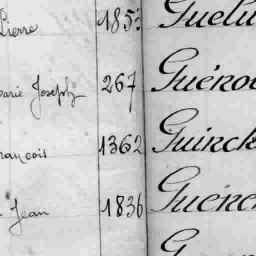 Pierre 1853 Guelu
Marie Joseph 267 Guérou
François 1362 Guinck
Jean 1836 Guéren
G